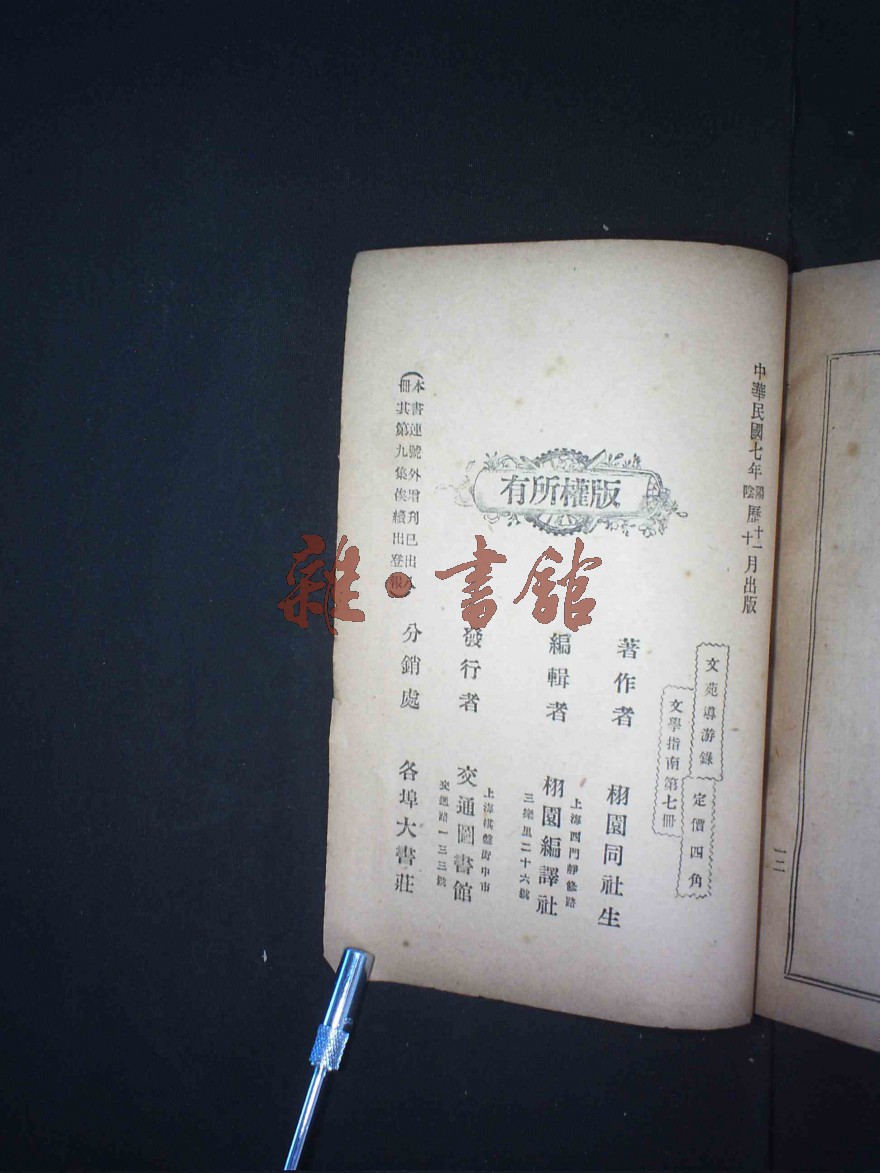 中華民國七年陽陰歷十一十月出版
文苑導游錄
定價四角
文學指南第七冊
版權所有
著作者　栩園同社生
編輯者　栩園編譯社
上海西門靜修路
三樂里二十六號
發行者　交通圖書館
上海棋盤街中市
交通路一三三號
分銷處　各埠大書莊
(本書連號外增刊已出八
冊其第九集俟續出登報
雜·書館